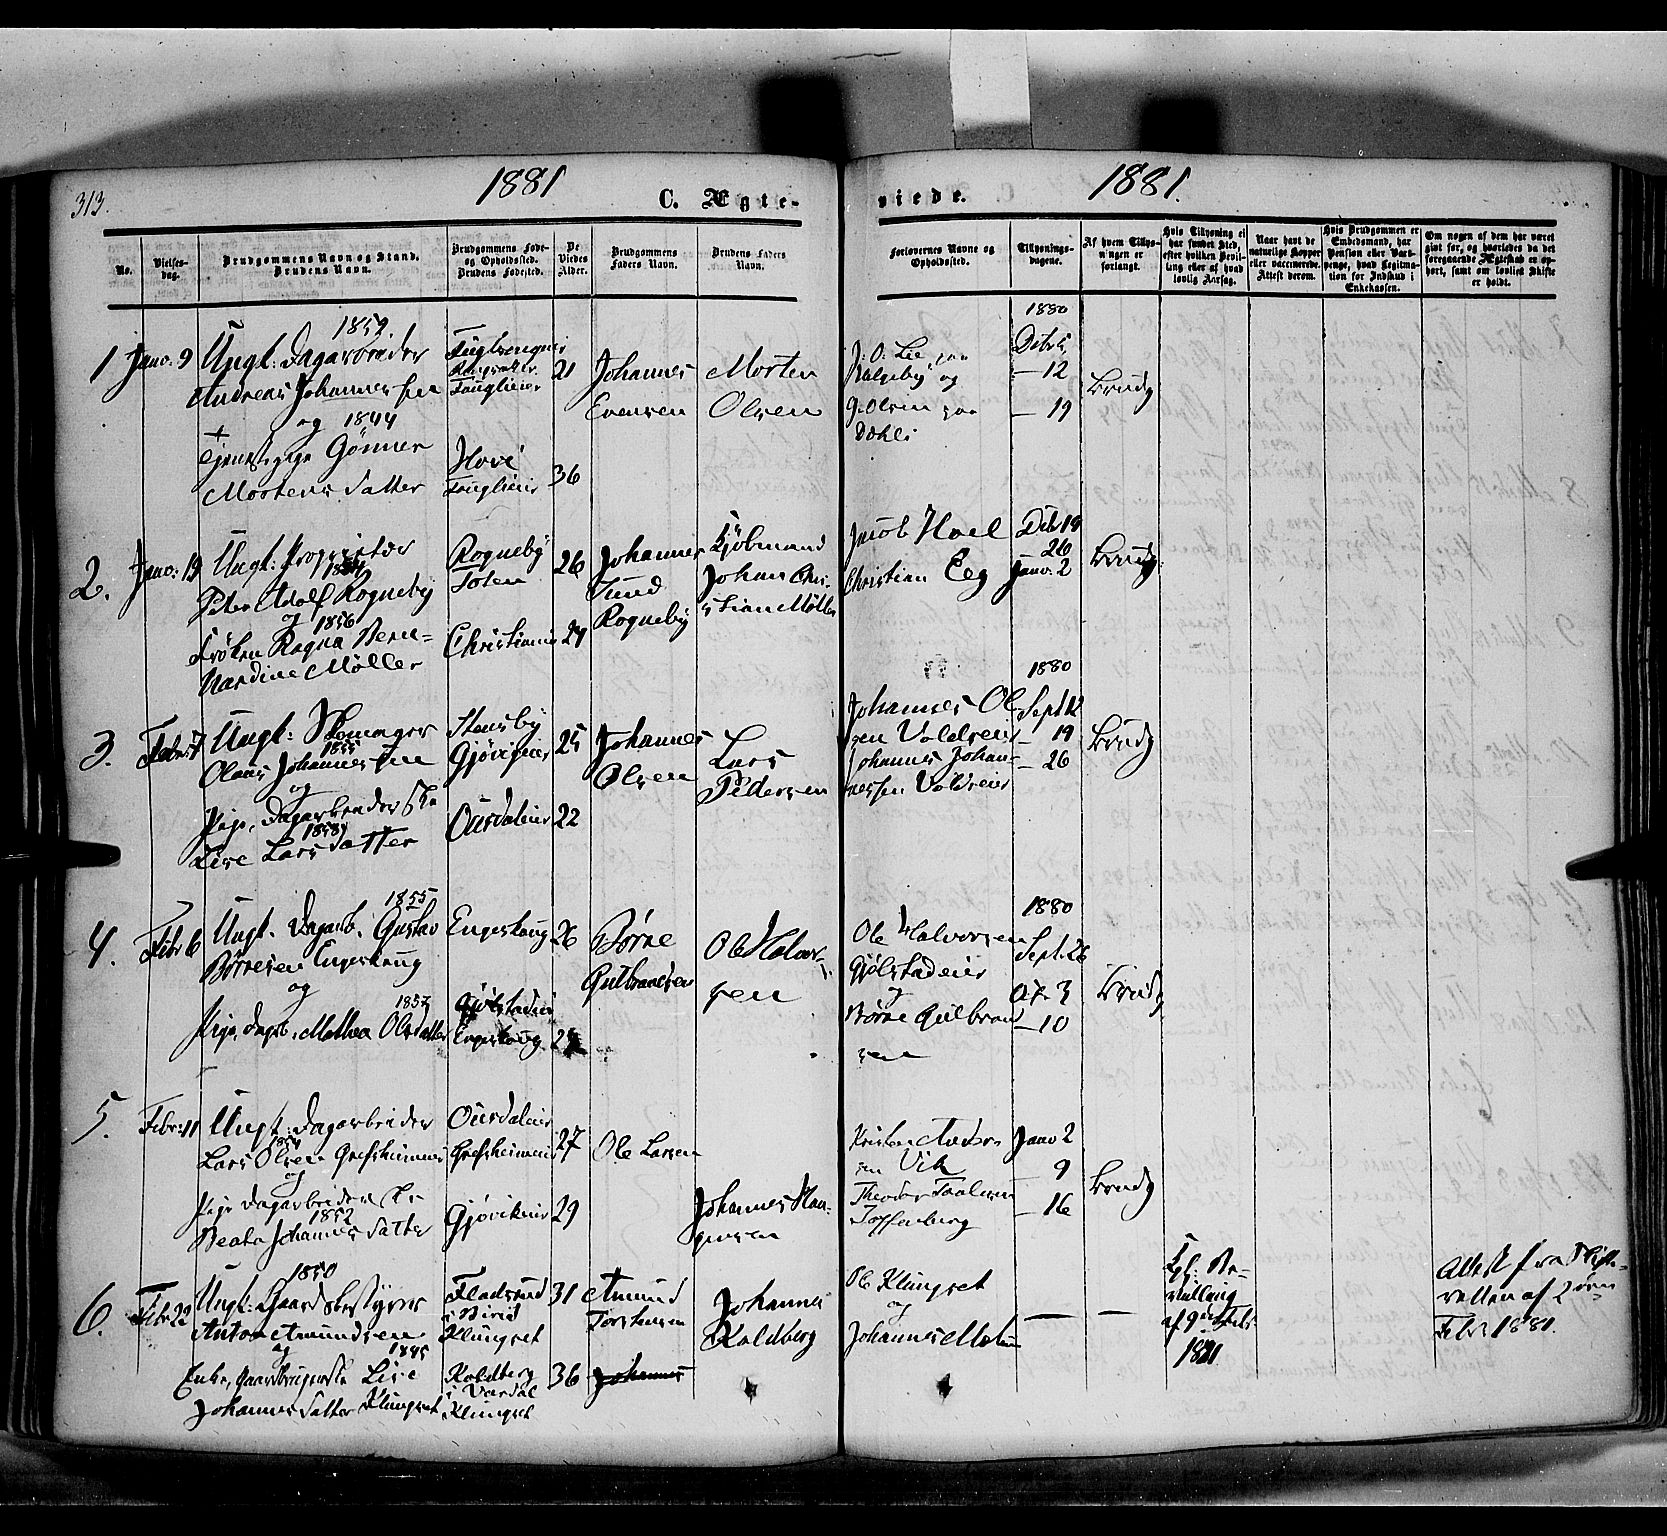 313.
1881
C. Ægte-
viede.
1881.
No.
Vielses-
dag.
Brudgommens Navn og Stand.
Brudens Navn.
Brudgommens Føde-
og Opholdssted.
Brudens Fødested.
De
Viedes
Alder.
Brudgommens
Faders Navn.
Brudens Faders
Navn.
Forlovernes Navne og
Opholdssted.
Tillysnings-
dagene.
Af hvem Tillys-
ningen er
forlangt.
Hvis Tillysning ei
har fundet Sted,
efter hvilken Bevil-
ling eller af hvad
lovlig Aarsag.
Naar havt de
naturlige Kopper
eller vaccinerede.
Attest derom.
Hvis Brudgommen er
Embedsmand, har
Pension eller Vart-
penge, hvad Legitima-
tion for Indskud i
Enkekassen.
Om nogen af dem har været
gift før, og hvorledes da det
foregaaende Ægteskab er op-
hørt, samt om lovligt Skifte
er holdt.
1 Janr: 9
1859.
Ungk: Dagarbeider
Andreas Johannessen
og 1844
Tjenestepige Gønner
Mortensdatter
21
Hove
36
Johannes
Evensen
Morten
Olsen
J. O. Lie paa
og
G. Olsen paa
Dæhli
1880
Debr 5
— 12
— 19
Brudg
2. Janr: 19
Ungk: Proprietær
1854
Peter Adolf Rogneby
og 1856
Frøken Ragna Bern-
hardine Møller
Rogneby
Toten
26
Christiania 24
Johannes
Lund
Rogneby
Kjøbmand
Johan Chri-
stian Møller
Jacob Hoel
Christian Eeg
Debr 19
26
Janr. 2
Brudg.
3. Febr: 7
Ungk: Skomager
1855
Olaus Johannessen
og
Pige, Dagarbeiderske
1858
Lise Larsdatter
Stensby
Gjøvigeier
25
Ousdaleier 22
Johannes
Olsen
Lars
Pedersen
Johannes Ol-
sen Voldseier
Johannes Johan-
nessen Voldseier
1880
Sept 12
— 19
— 26
Brudg
4. Febr 6
1855
Ungk. Dagarb. Gustav
Børresen Engeskaug
og
1857
Pige, Dagb. Mathea Olsdatter
Engeskaug 26
Gjølstadeier
Engeskaug
Børre
Gulbrandsen
Ole Halvor-
sen
Ole Halvorsen
Gjølstadeier
og
Børre Gulbrand-
sen
1880
Sept. 26
Oct. 3
— 10
Brudg
5. Febr: 11
Ungk: Dagarbeider
1854
Lars Olsen Grefsheimeier
og
Pige Dagarbeiderske
1852
Beate Johannesdatter
Ousdaleier
Grefsheimeier 27
Gjøvikeier 29
Ole Larsen
Johannes Man-
gersen
Kristen Anders-
sen Vik
Theodor Paulsen
Toffenberg
Janr 2
— 9
— 16
Brudg
6. Febr 22
1850
Ungk: Gaardsbestyrer
Anton Amundsen
og 1845
Enke, Gaardbrugerske Lise
Johannesdatter Klungset
Fladsrud
i Birid
Klungset
31
Koldberg
i Vardal
Klungset
36
Amund
Torstensen
Johannes
Johannes
Koldberg
Ole Klungset
og
Johannes
—
—
Kgl. Be-
villing
af 9de Febr
1881.
Attest fra Skifte-
retten af
Febr 1881.